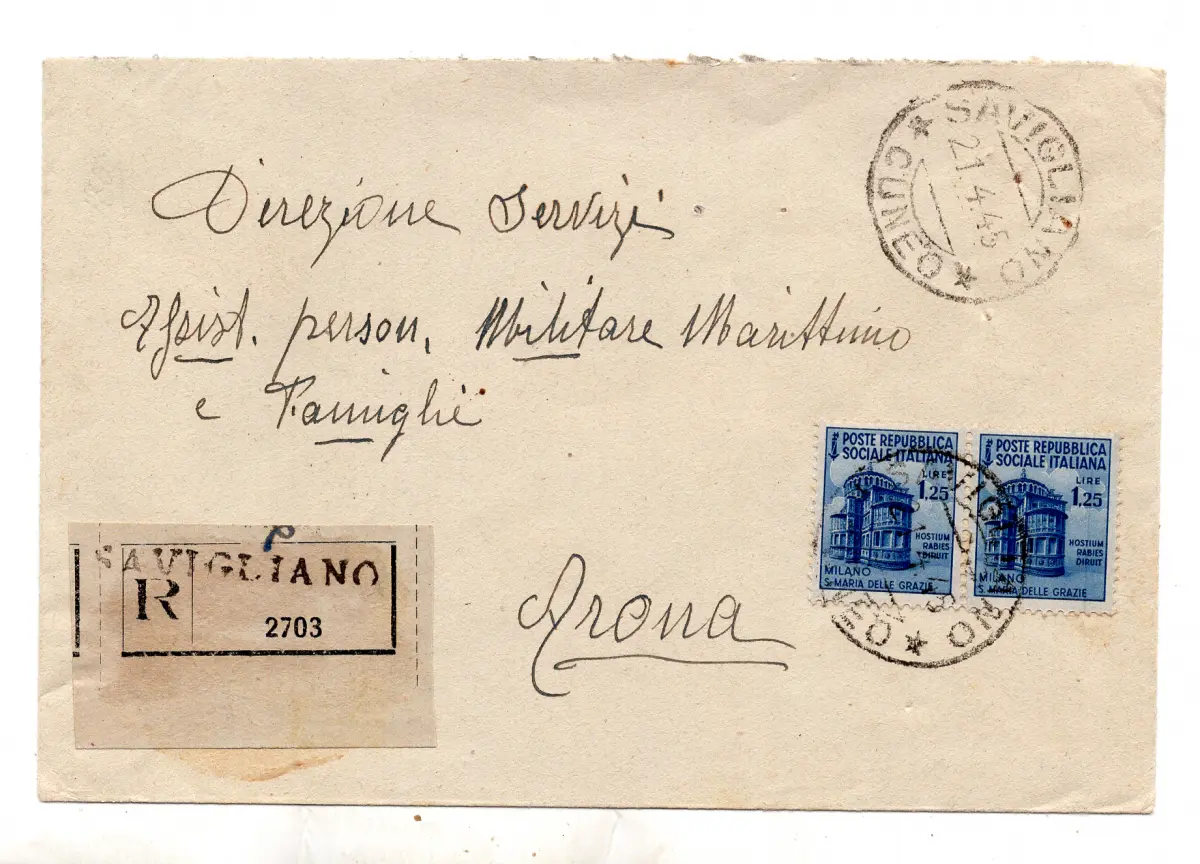 SAVIGLIANO
CUNEO
21.4.45
Direzione Servizi
Assist. person. Militare Marittimo
e Famiglie
POSTE REPUBBLICA
SOCIALE ITALIANA
LIRE
1,25
HOSTIUM
RABIES
DIRUIT
MILANO
S. MARIA DELLE GRAZIE
POSTE REPUBBLICA
SOCIALE ITALIANA
LIRE
1,25
HOSTIUM
RABIES
DIRUIT
MILANO
S. MARIA DELLE GRAZIE
SAVIGLIANO
R
2703
Arona